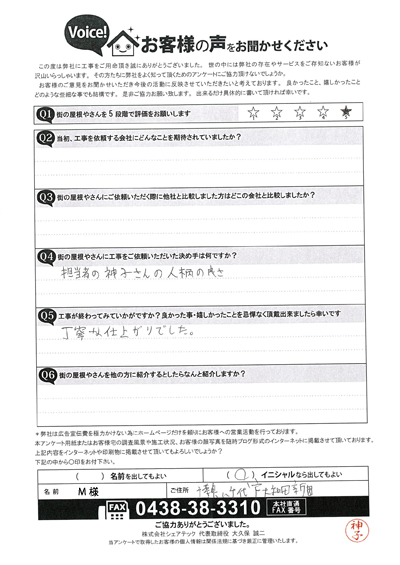 Voice!
お客様の声をお聞かせください
この度は弊社に工事をご用命頂き誠にありがとうございました。世の中には弊社の存在やサービスをご存知ないお客様が
沢山いらっしゃいます。その方たちに弊社をよく知って頂くためのアンケートにご協力頂けないでしょうか。
お客様のご意見をお聞かせいただき今後の活動に反映させていただきたいと考えております。良かったこと、嬉しかったこと
どのような些細な事でも結構です。是非ご協力お願い致します。出来るだけ具体的に書いて頂ければ幸いです。
Q1 街の屋根やさんを5段階で評価をお願いします
1 2 3 4 5
Q2 当初、工事を依頼する会社にどんなことを期待されていましたか?
Q3 街の屋根やさんにご依頼いただく際に他社と比較しました方はどこの会社と比較しましたか?
Q4 街の屋根やさんに工事をご依頼いただいた決め手は何ですか?
担当者の神子さんの人柄の良さ
Q5 工事が終わってみていかがですか?良かった事・嬉しかったことを忌憚なく頂戴出来ましたら幸いです
丁寧な仕上がりでした。
Q6 街の屋根やさんを他の方に紹介するとしたらなんと紹介しますか?
*弊社は広告宣伝費を極力かけない為にホームページだけを頼りにお客様への営業活動を行っております。
本アンケート用紙またはお客様宅の調査風景や施工状況、お客様の顔写真を随時ブログ形式のインターネットに掲載させて頂いております。
上記内容をインターネットや印刷他に掲載させて頂いてもよろしいでしょうか?
下記の中から〇印をお付下さい。
( )名前を出してもよい (〇)イニシャルなら出してもよい
名前 M様 ご住所
FAX 0438-38-3310 本社直通 FAX番号
ご協力ありがとうございました。
株式会社シェアテック 代表取締役 大久保 誠二
当アンケートで取得したお客様の個人情報は関係法規に基づき厳正に管理いたします。
神子